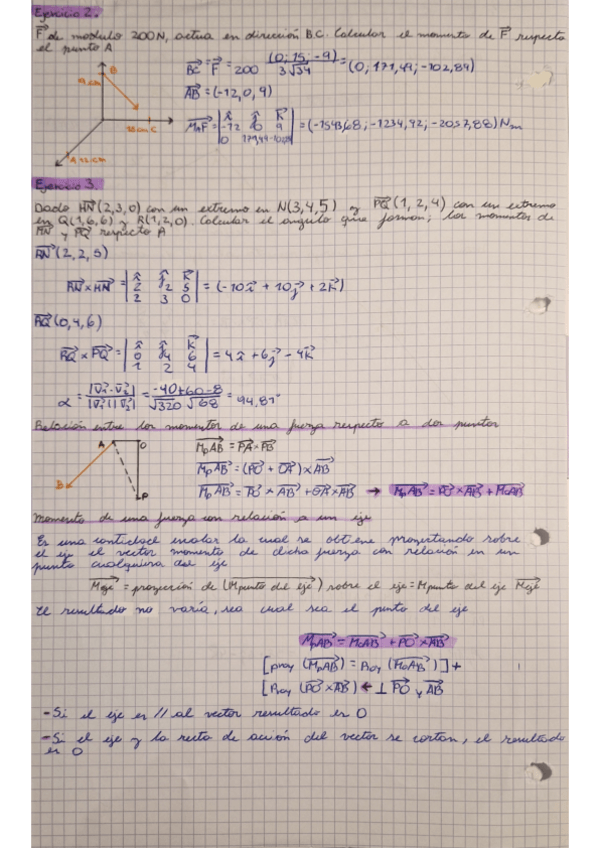 Ejercicio 2.
F de modulo 200N, actua en dirección B.C. Calcular el momento de F respecto
el punto A
BC = F = 200 (0; 15; -9) / 3√34 = (0; 171,49; -102,89)
B
9 cm
AB = (-12, 0, 9)
15 cm C
MAF = | i j k | -12 0 9 | 0 171,49 -102,89 | = (-1543,68; -1234,92; -2057,88) Nm
A 12 cm
Ejercicio 3.
Dado MN (2, 3, 0) con un extremo en N(3,4,5) y PQ (1, 2, 4) con un extremo
en Q(1,6,6) y R(1,2,0). Calcular el angulo que forman; los momentos de
MN y PQ respecto A
RN (2, 2, 5)
RN × MN = | i j k | 2 2 5 | 2 3 0 | = (-10i + 10j + 2k)
RQ (0, 4, 6)
RQ × PQ = | i j k | 0 4 6 | 1 2 4 | = 4i + 6j - 4k
α = |V1 · V2| / |V1| |V2| = -40+60-8 / √320 √68 = 94,81°
Relación entre los momentos de una fuerza respecto a dos puntos
A O
MpAB = PA × AB
MpAB = (PO + OA) × AB
B
MpAB = PO × AB + OA × AB → MpAB = PO × AB + MoAB
P
Momento de una fuerza con relación a un eje
Es una cantidad escalar la cual se obtiene proyectando sobre
el eje el vector momento de dicha fuerza con relación en un
punto cualquiera del eje
Meje = proyección de (Mpunto del eje) sobre el eje = Mpunto del eje Meje
El resultado no varía, sea cual sea el punto del eje
MpAB = MoAB + PO × AB
[proy (MpAB) = Proy (MoAB)] +
[Proy (PO × AB) ← ⊥ PO y AB
- Si el eje es // al vector resultado es 0
- Si el eje y la recta de acción del vector se cortan, el resultado
es 0